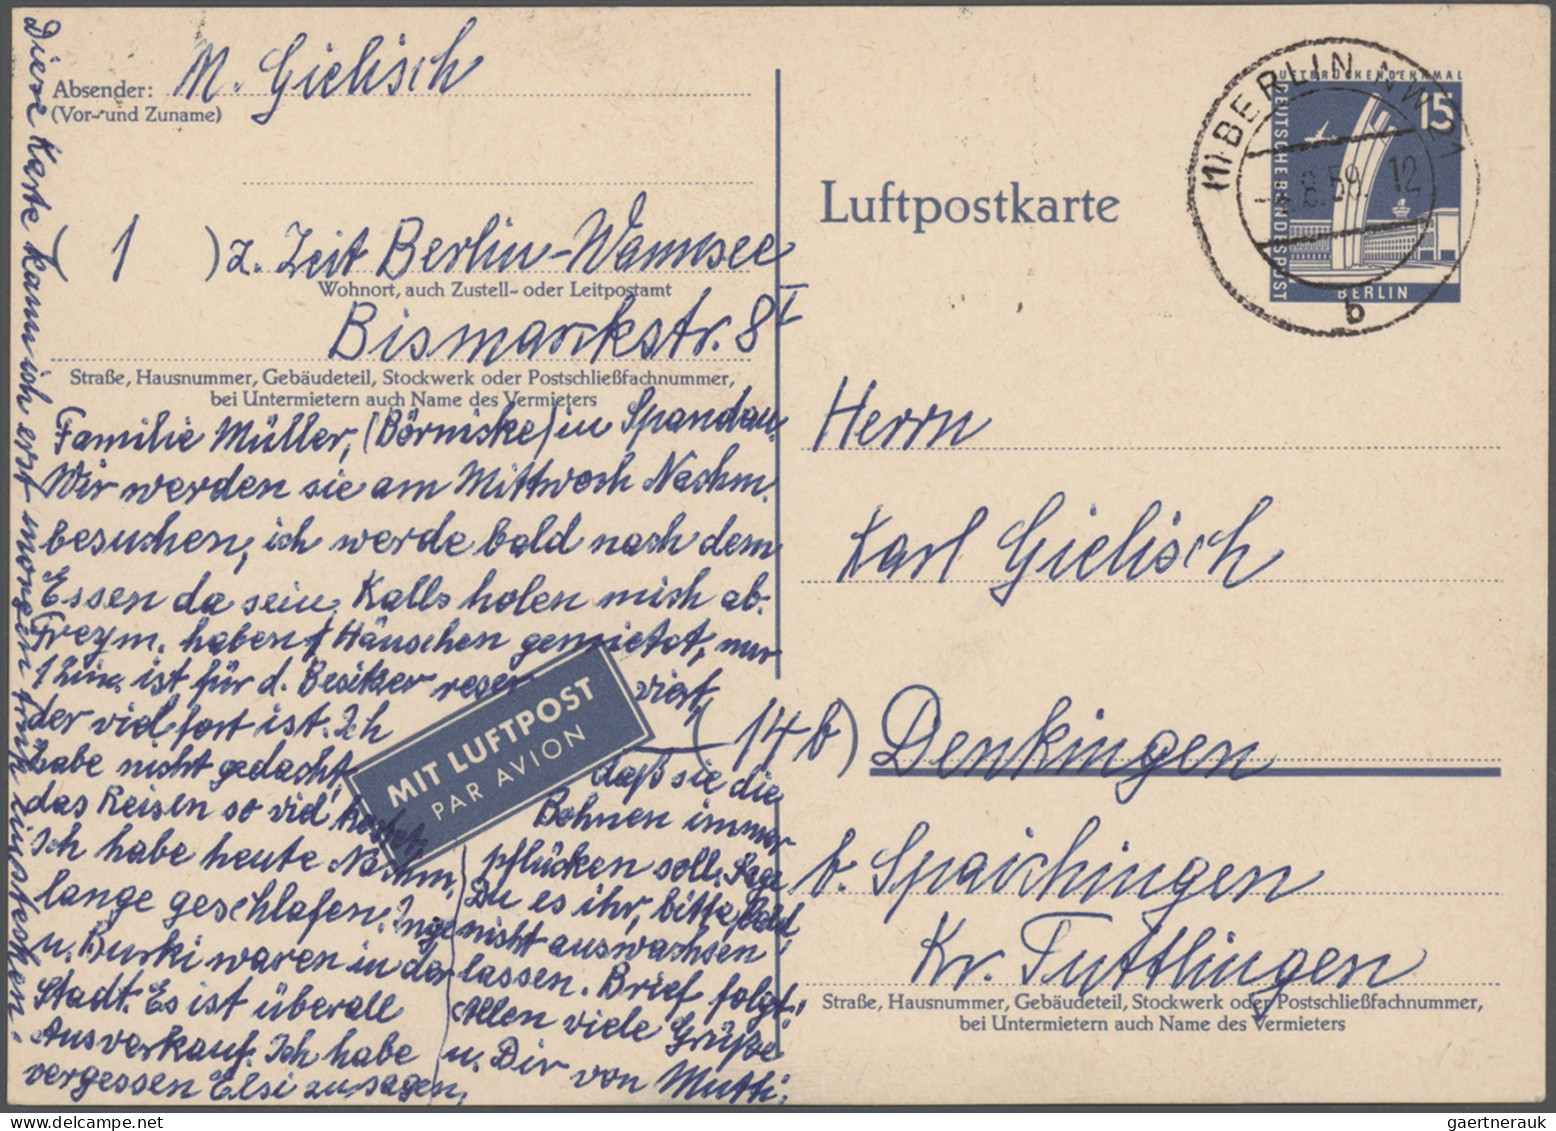 Absender: M. Gielisch
(Vor- und Zuname)
( 1 ) z. Zeit Berlin-Wannsee
Wohnort, auch Zustell- oder Leitpostamt
Bismarckstr. 8 I
Straße, Hausnummer, Gebäudeteil, Stockwerk oder Postschließfachnummer,
bei Untermietern auch Name des Vermieters
Familie Müller, (Börniske) in Spandau.
Wir werden sie am Mittwoch Nachm.
besuchen, ich werde bald nach dem
Essen da sein, Kalls holen mich ab.
Freym. haben 1 Häuschen gemietet, nur
1 Zim. ist für d. Besitzer reserviert,
der viel fort ist. Ich
habe nicht gedacht,
das Reisen so viel kostet.
Ich habe heute Nachm.
lange geschlafen. Inge
u. Burki waren in der
Stadt. Es ist überall
Ausverkauf. Ich habe
vergessen Elsi zu sagen,
daß sie die
Bohnen immer
pflücken soll. Sage
Du es ihr, bitte, bald,
nicht auswachsen
lassen. Brief folgt!
Allen viele Grüße
u. Dir von Mutti.
Diese Karte kann ich erst morgen früh einstecken.
MIT LUFTPOST
PAR AVION
Luftpostkarte
LUFTBRÜCKENDENKMAL
15
DEUTSCHE BUNDESPOST
BERLIN
(1) BERLIN NW
8.58. 12
b
Herrn
Karl Gielisch
(14b) Denkingen
b. Spaichingen
Kr. Tuttlingen
Straße, Hausnummer, Gebäudeteil, Stockwerk oder Postschließfachnummer,
bei Untermietern auch Name des Vermieters
gaertnerauk